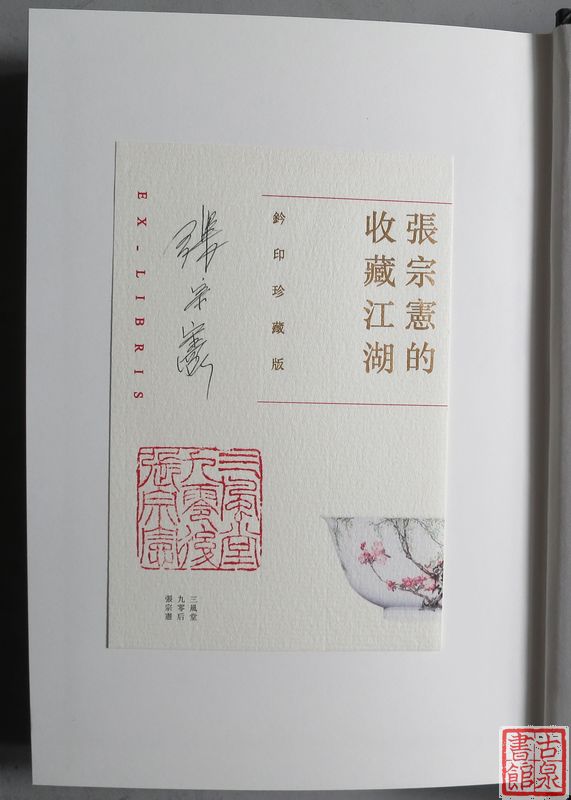 張宗憲的
收藏江湖
鈐印珍藏版
張宗憲
EX-LIBRIS
三風堂
九零後
張宗憲
三風堂
九零后
張宗憲
古泉
書館